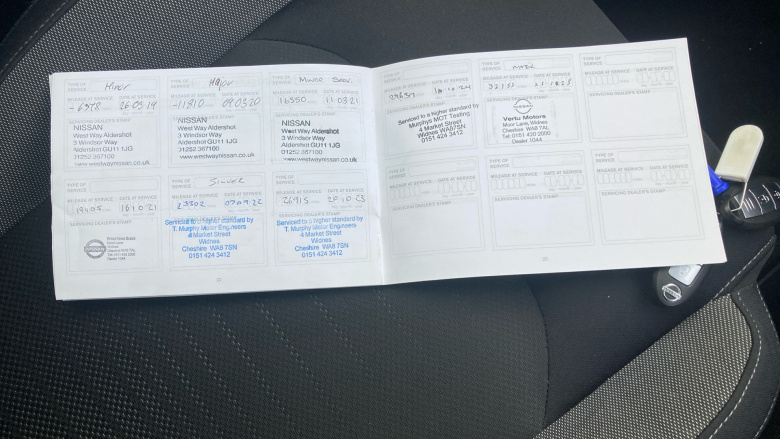 TYPE OF SERVICE Minor
MILEAGE AT SERVICE DATE AT SERVICE
26 03 19
SERVICING DEALER'S STAMP
NISSAN
West Way Aldershot
3 Windsor Way
Aldershot GU11 1JG
01252 367100
www.westwaynissan.co.uk
TYPE OF SERVICE Major
MILEAGE AT SERVICE DATE AT SERVICE
11810 09 03 20
SERVICING DEALER'S STAMP
NISSAN
West Way Aldershot
3 Windsor Way
Aldershot GU11 1JG
01252 367100
www.westwaynissan.co.uk
TYPE OF SERVICE Minor Serv.
MILEAGE AT SERVICE DATE AT SERVICE
11 03 21
SERVICING DEALER'S STAMP
NISSAN
West Way Aldershot
3 Windsor Way
Aldershot GU11 1JG
01252 367100
www.westwaynissan.co.uk
TYPE OF SERVICE
MILEAGE AT SERVICE DATE AT SERVICE
16 10 21
SERVICING DEALER'S STAMP
NISSAN
TYPE OF SERVICE
MILEAGE AT SERVICE DATE AT SERVICE
23302 07 09 22
SERVICING DEALER'S STAMP
Serviced to a higher standard by
T. Murphy Motor Engineers
4 Market Street
Widnes
Cheshire WA8 7SN
0151 424 3412
TYPE OF SERVICE
MILEAGE AT SERVICE DATE AT SERVICE
26915 20 10 23
SERVICING DEALER'S STAMP
Serviced to a higher standard by
T. Murphy Motor Engineers
4 Market Street
Widnes
Cheshire WA8 7SN
0151 424 3412
TYPE OF SERVICE
MILEAGE AT SERVICE DATE AT SERVICE
10 24
Serviced to a higher standard by
Murphys MOT Testing
4 Market Street
Widnes WA87SN
0151 424 3412
TYPE OF SERVICE
MILEAGE AT SERVICE DATE AT SERVICE
NISSAN
Vertu Motors
Moor Lane, Widnes
Cheshire WA8 7AL
Tel: 0151 420 2000
Dealer 1044
TYPE OF SERVICE
MILEAGE AT SERVICE DATE AT SERVICE
SERVICING DEALER'S STAMP
TYPE OF SERVICE
MILEAGE AT SERVICE DATE AT SERVICE
SERVICING DEALER'S STAMP
TYPE OF SERVICE
MILEAGE AT SERVICE DATE AT SERVICE
SERVICING DEALER'S STAMP
TYPE OF SERVICE
MILEAGE AT SERVICE DATE AT SERVICE
SERVICING DEALER'S STAMP